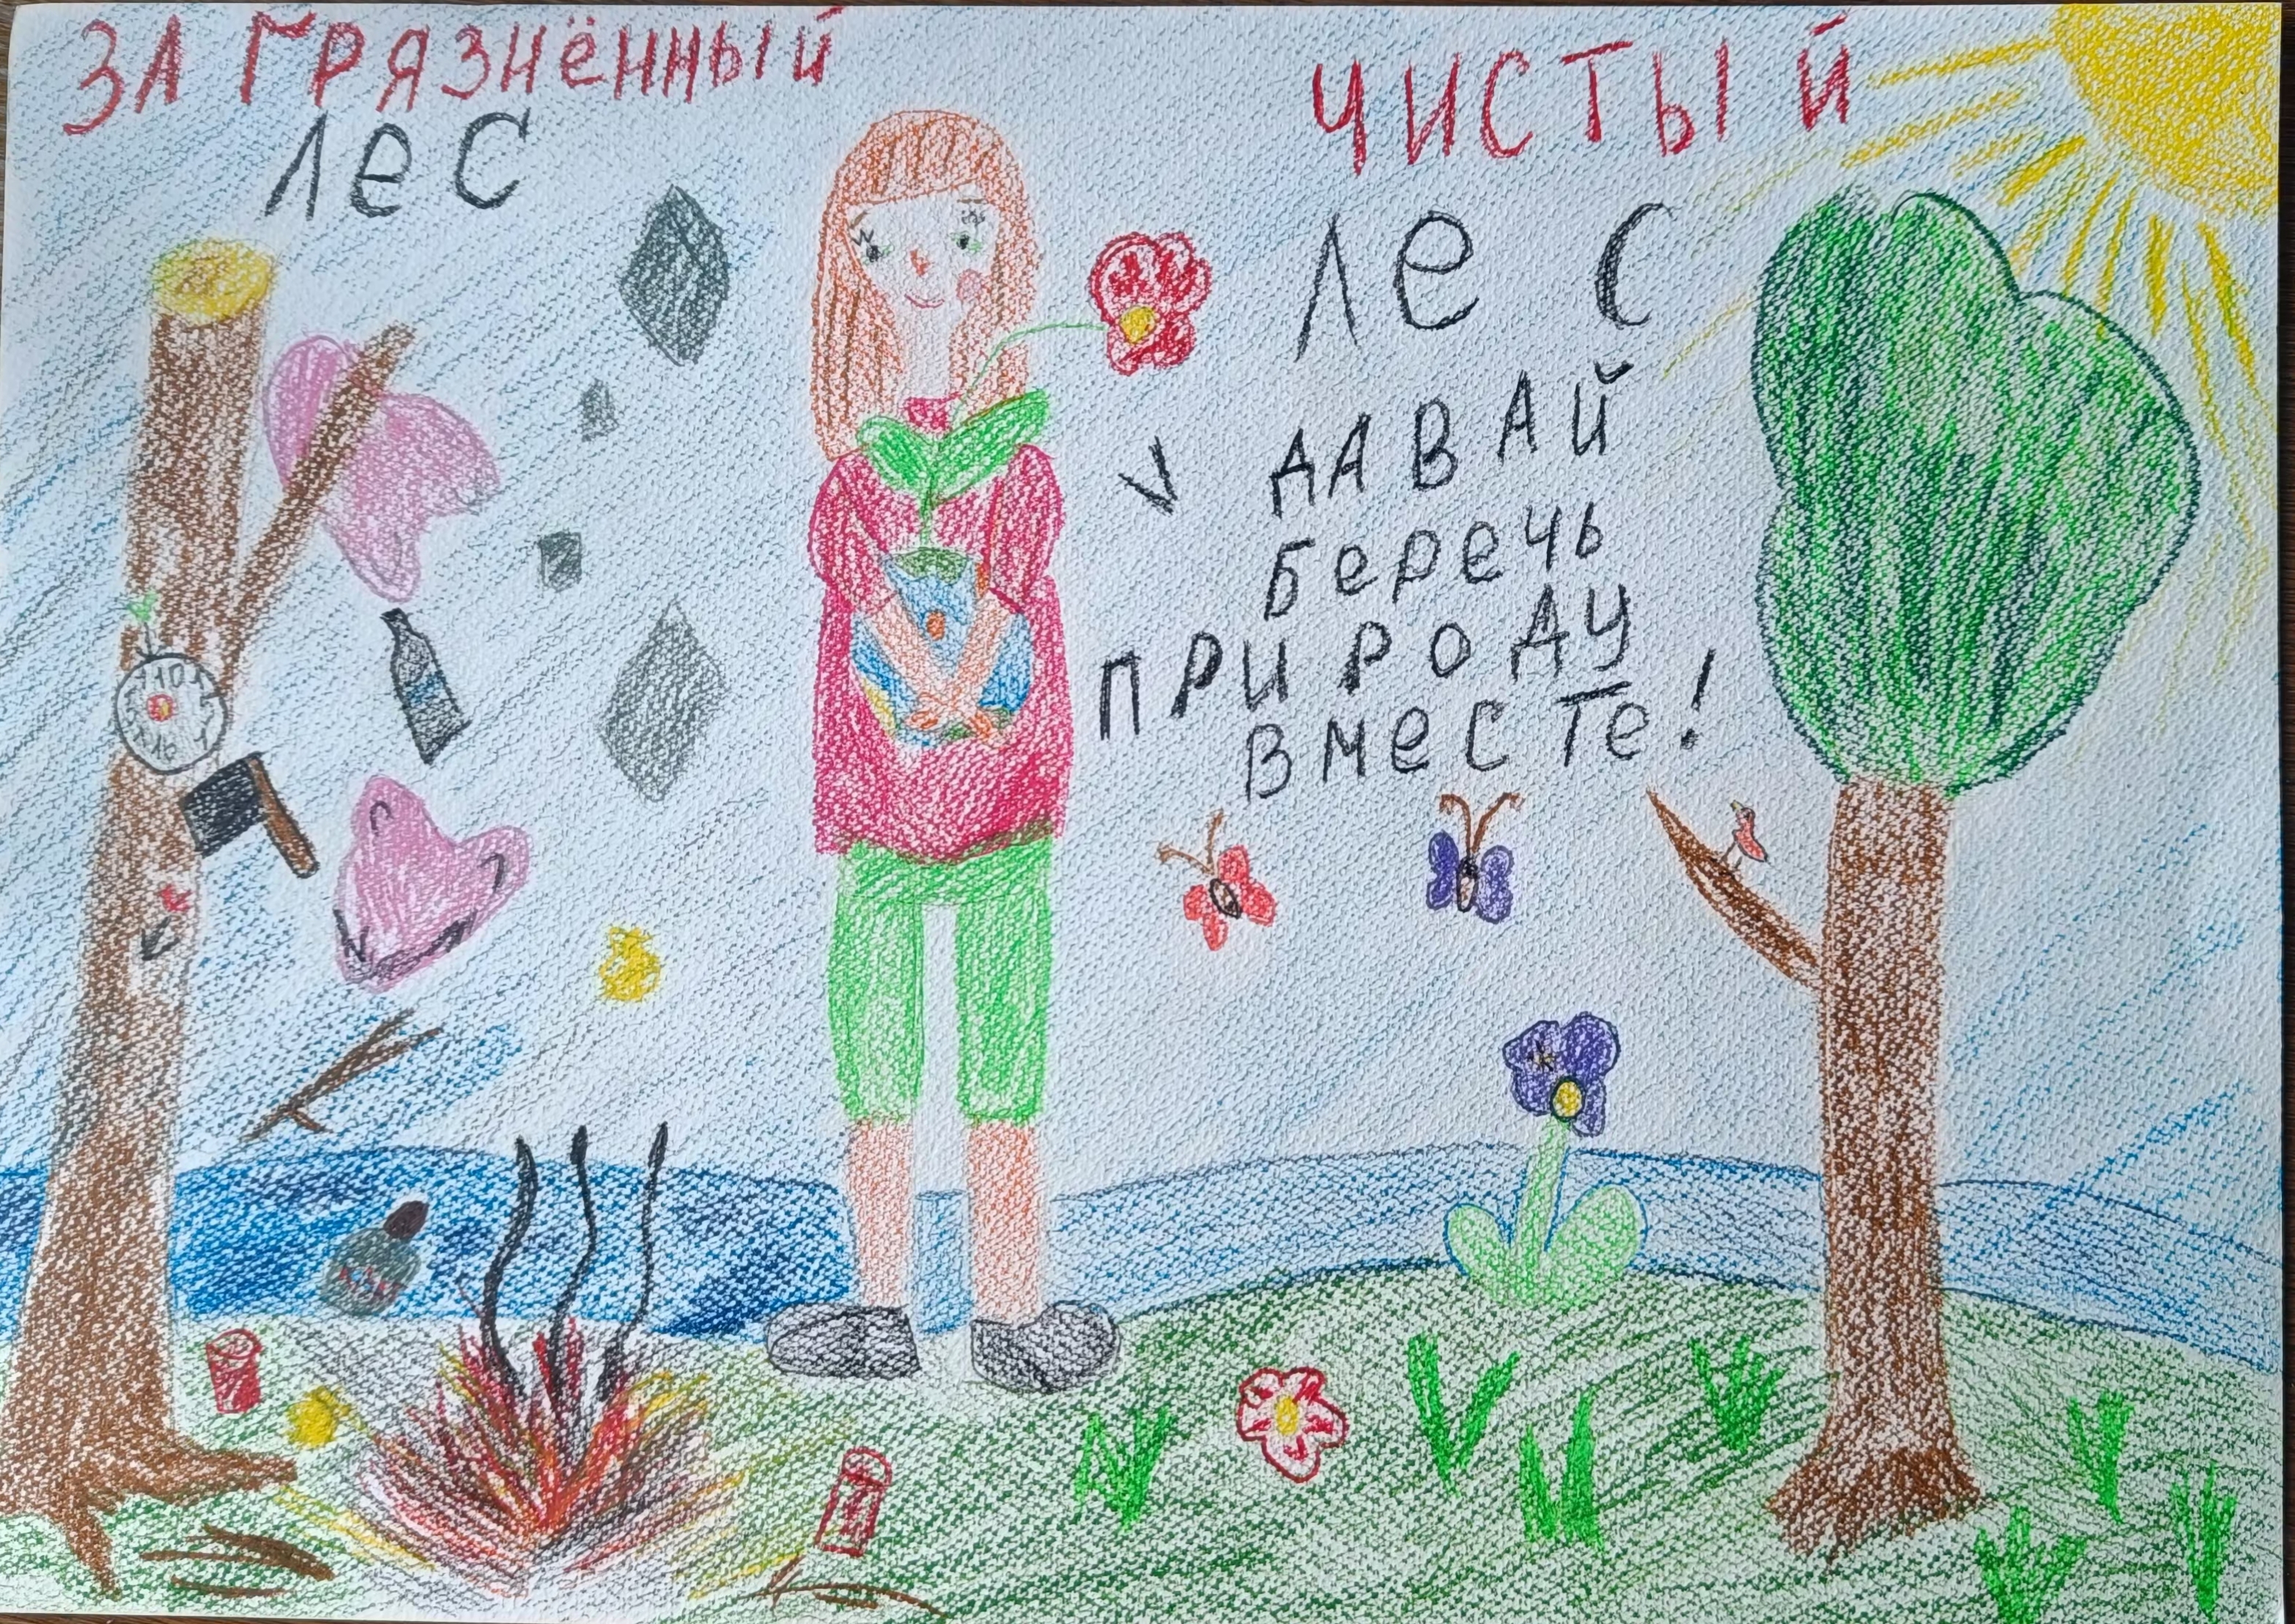 ЗАГРЯЗНЁННЫЙ
ЛеС
ЧИСТЫЙ
ЛеС
ДАВАЙ
беречь
ПРИРОДУ
ВМеСТе!